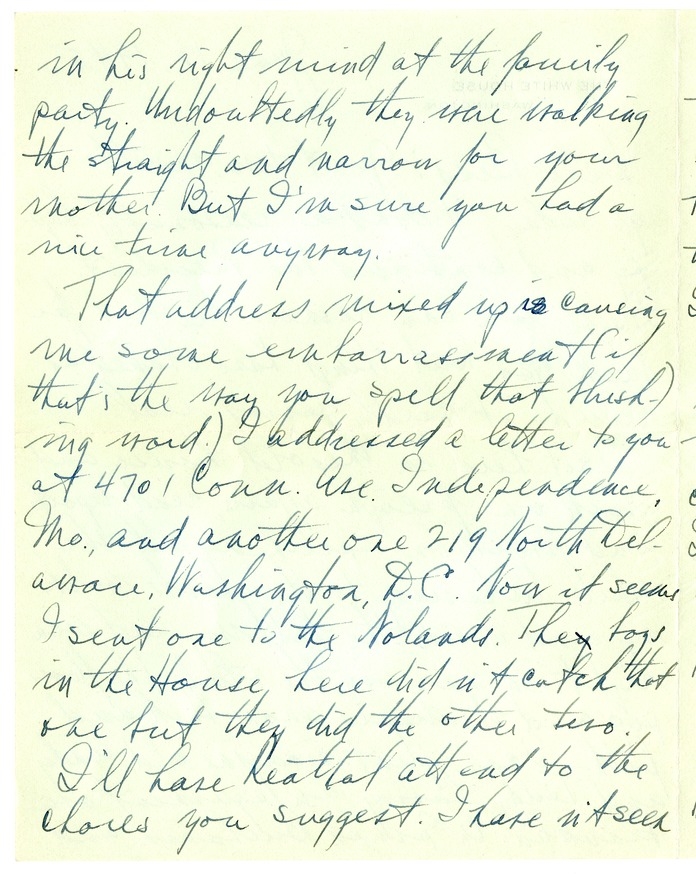 in his right mind at the family
party. Undoubtedly they were walking
the straight and narrow for your
mother. But I'm sure you had a
nice time anyway.
That address mixed up is causing
me some embarrassment (if
that's the way you spell that blush-)
ing word.) I addressed a letter to you
at 4701 Conn. Ave. Independence,
Mo., and another one 219 North Del-
aware, Washington, D.C. Now it seems
I sent one to the Nolands. The boys
in the House here did n't catch that
one but they did the other two.
I'll have attend to the
chores you suggest. I have n't seen